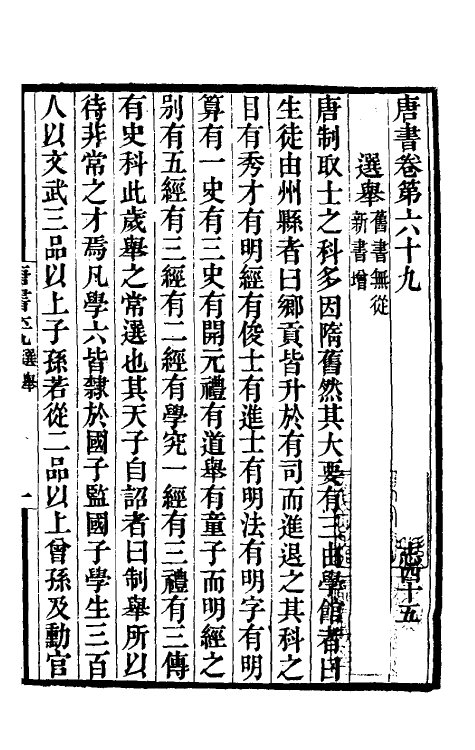 唐書卷第六十九 志四十五
選舉 舊書無從
新書增
唐制取士之科多因隋舊然其大要有三由學館者曰
生徒由州縣者曰鄉貢皆升於有司而進退之其科之
目有秀才有明經有俊士有進士有明法有明字有明
算有一史有三史有開元禮有道舉有童子而明經之
別有五經有三經有二經有學究一經有三禮有三傳
有史科此歲舉之常選也其天子自詔者曰制舉所以
待非常之才焉凡學六皆隸於國子監國子學生三百
人以文武三品以上子孫若從二品以上曾孫及勳官
唐書 選舉 一